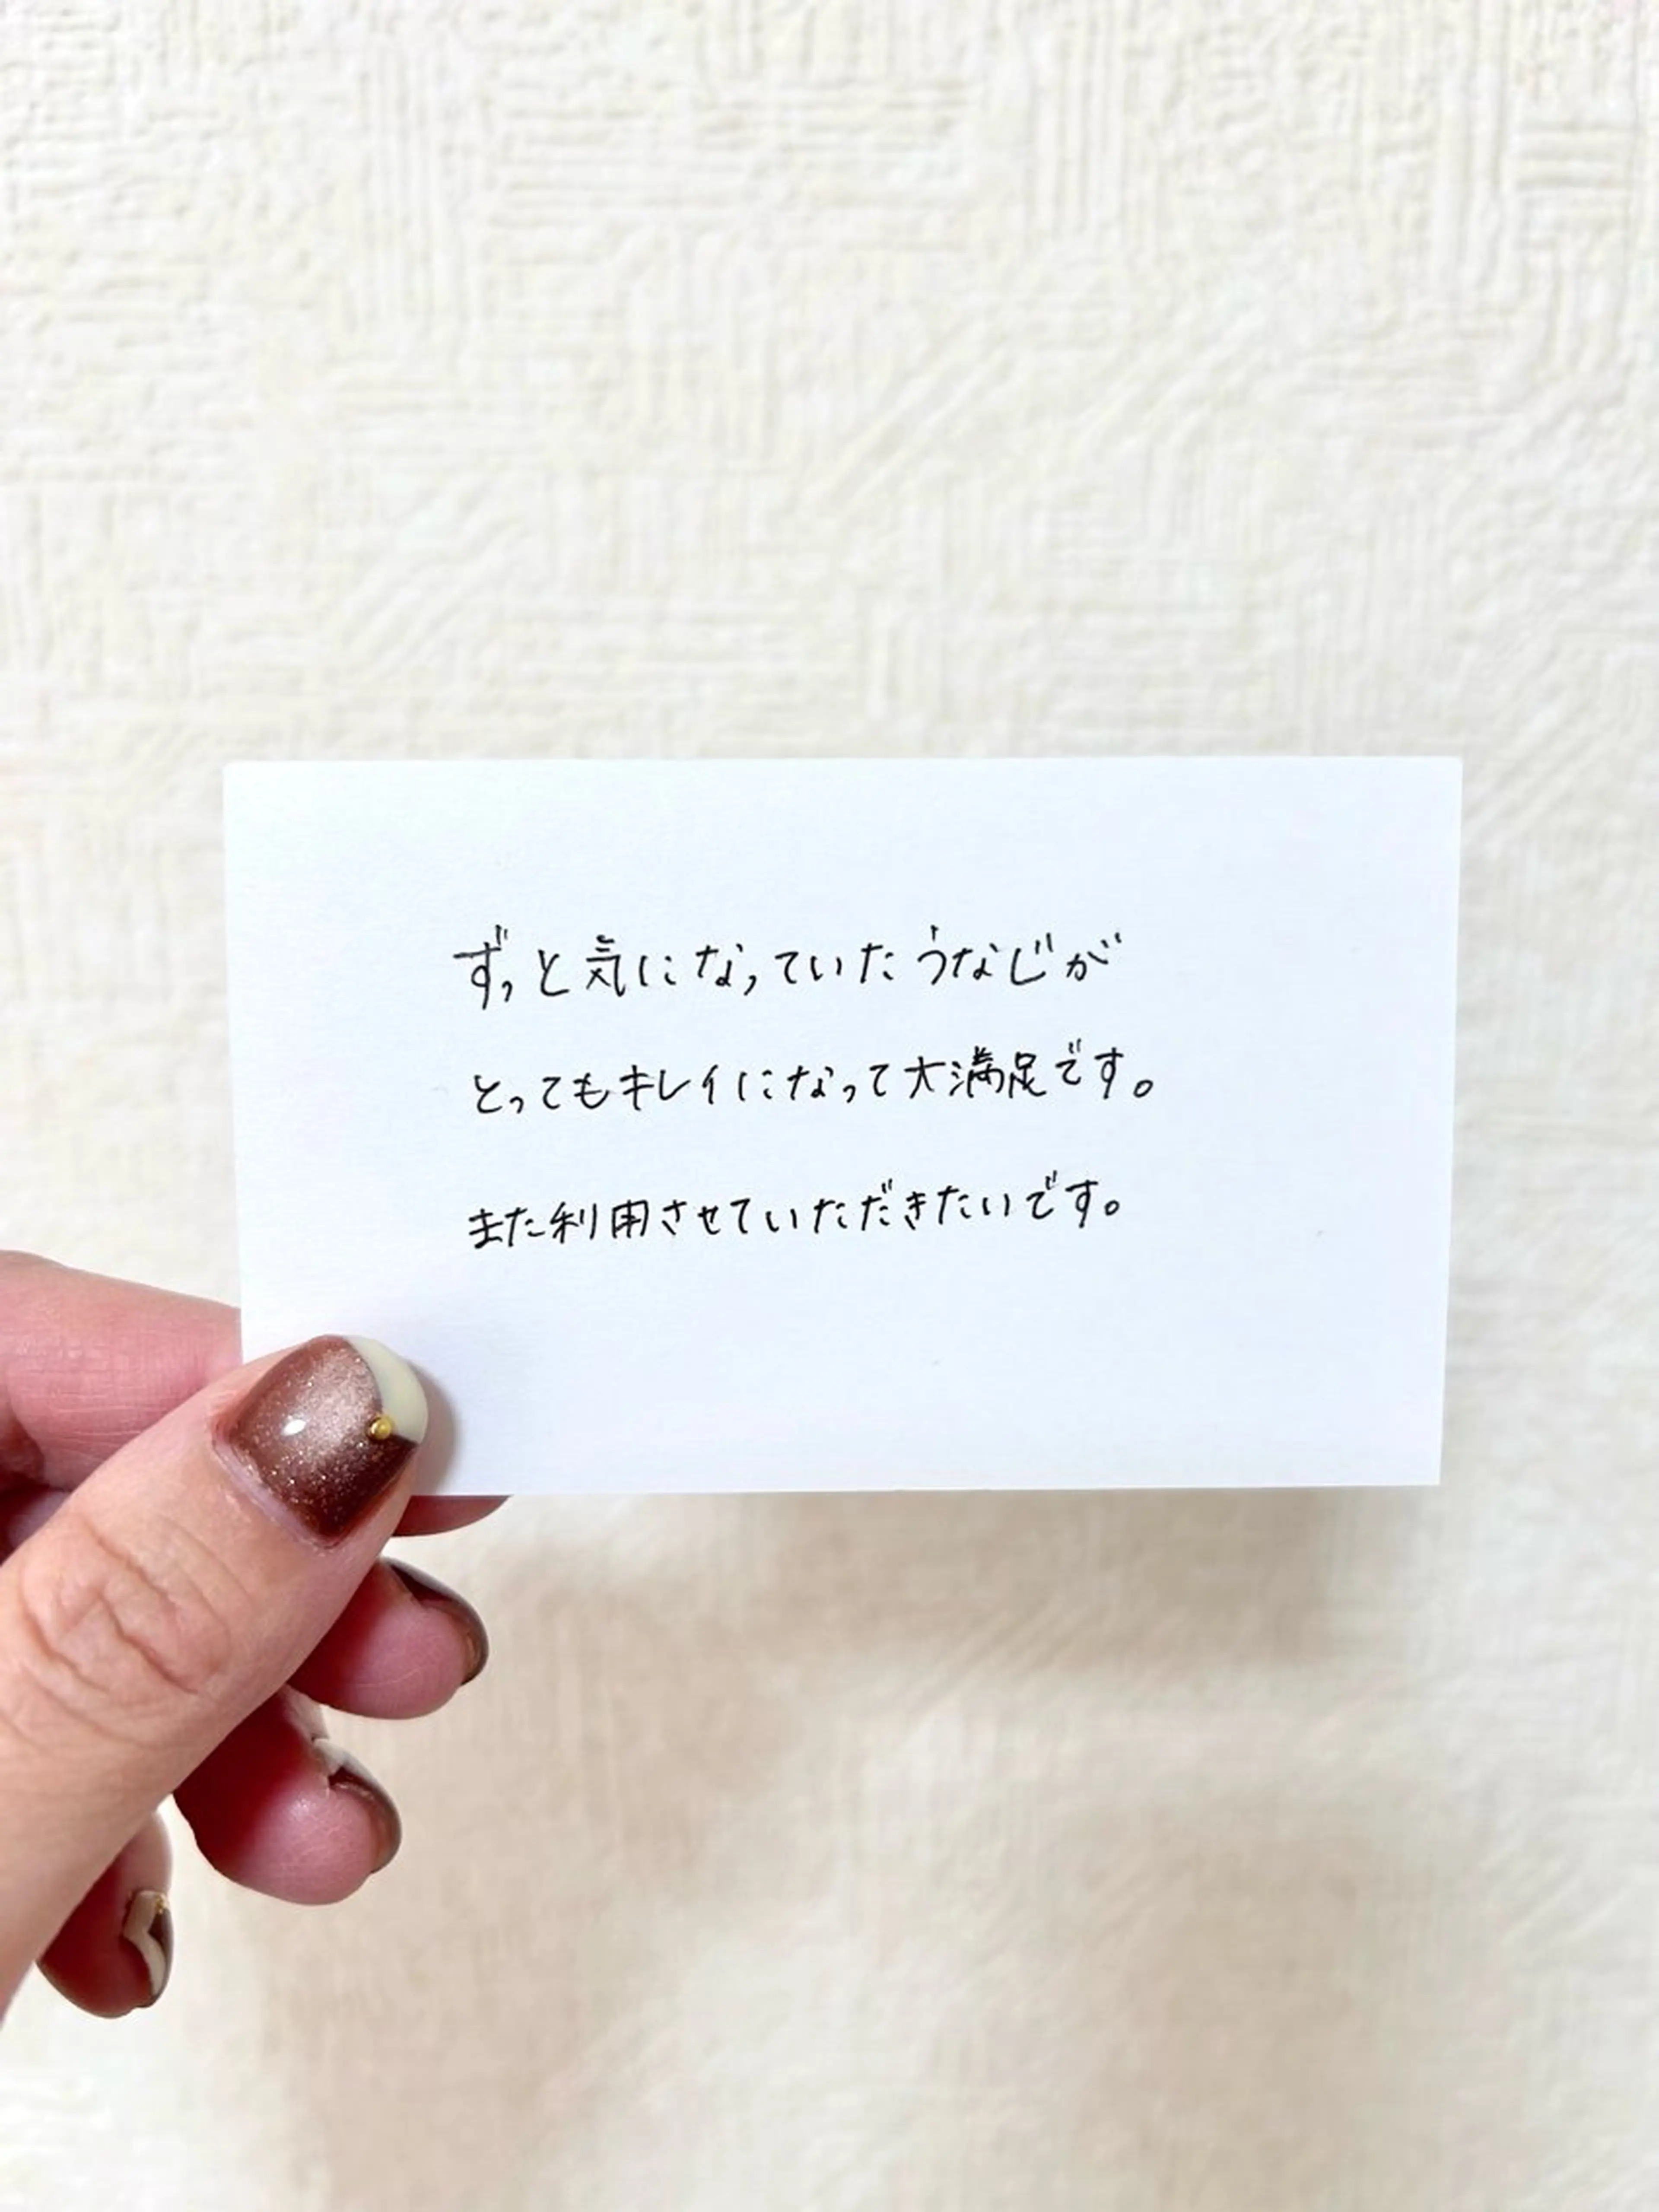 ずっと気になっていたうなじが
とってもキレイになって大満足です。
また利用させていただきたいです。